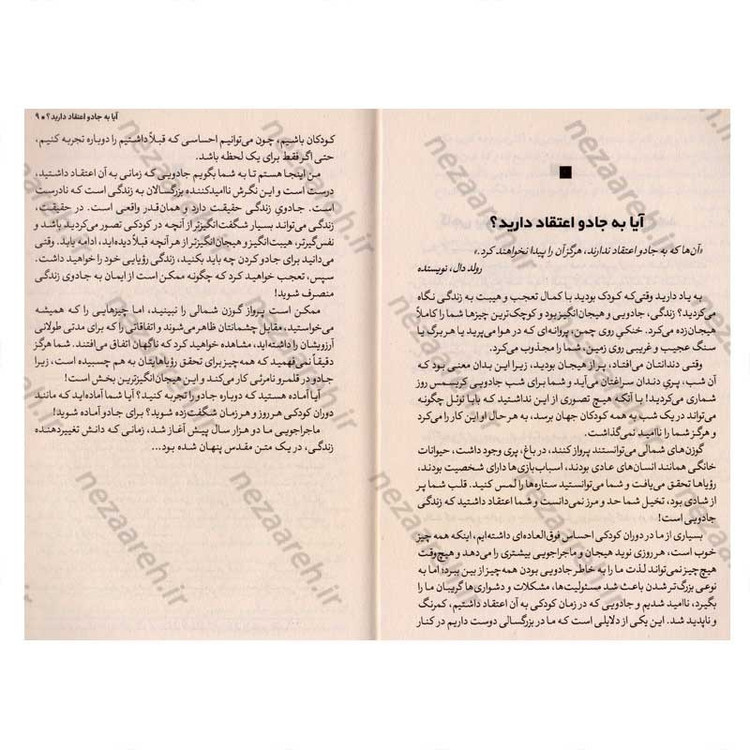 آیا به جادو اعتقاد دارید؟
«آن‌ها که به جادو اعتقاد ندارند، هرگز آن را پیدا نخواهند کرد.»
رولد دال، نویسنده
به یاد دارید وقتی‌که کودک بودید با کمال تعجب و هیبت به زندگی نگاه
می‌کردید؟ زندگی، جادویی و هیجان‌انگیز بود و کوچک‌ترین چیزها شما را کاملاً
هیجان‌زده می‌کرد. خنکیِ روی چمن، پروانه‌ای که در هوا می‌پرید یا هر برگ یا
سنگ عجیب و غریبی روی زمین، شما را مجذوب می‌کرد.
وقتی دندانتان می‌افتاد، پر از هیجان بودید، زیرا این بدان معنی بود که
آن شب، پریِ دندان سراغتان می‌آید و شما برای شب جادویی کریسمس روز
شماری می‌کردید! با آنکه هیچ تصوری از این نداشتید که بابا نوئل چگونه
می‌تواند در یک شب به همه کودکان جهان برسد، به هر حال او این کار را می‌کرد
و هرگز شما را ناامید نمی‌گذاشت.
گوزن‌های شمالی می‌توانستند پرواز کنند، در باغ، پری وجود داشت، حیوانات
خانگی همانند انسان‌های عادی بودند، اسباب‌بازی‌ها دارای شخصیت بودند،
رؤیاها تحقق می‌یافت و شما می‌توانستید ستاره‌ها را لمس کنید. قلب شما پر
از شادی بود، تخیل شما حد و مرز نمی‌دانست و شما اعتقاد داشتید که زندگی
جادویی است!
بسیاری از ما در دوران کودکی احساس فوق‌العاده‌ای داشته‌ایم، اینکه همه چیز
خوب است، هر روزی نوید هیجان و ماجراجویی بیشتری را می‌دهد و هیچ‌وقت
هیچ‌چیز نمی‌تواند لذت ما را به خاطر جادویی بودن همه‌چیز از بین ببرد؛ اما به
نوعی بزرگ‌تر شدن باعث شد مسئولیت‌ها، مشکلات و دشواری‌ها گریبان ما را
بگیرد، ناامید شدیم و جادویی که در زمان کودکی به آن اعتقاد داشتیم، کمرنگ
و ناپدید شد. این یکی از دلایلی است که ما در بزرگسالی دوست داریم در کنار
آیا به جادو اعتقاد دارید؟ ● ۹
کودکان باشیم، چون می‌توانیم احساسی که قبلاً داشتیم را دوباره تجربه کنیم،
حتی اگر فقط برای یک لحظه باشد.
من اینجا هستم تا به شما بگویم جادویی که زمانی به آن اعتقاد داشتید،
درست است و این نگرش ناامیدکننده بزرگسالان به زندگی است که نادرست
است. جادوی زندگی حقیقت دارد و همان‌قدر واقعی است. در حقیقت،
زندگی می‌تواند بسیار شگفت‌انگیزتر از آنچه در کودکی تصور می‌کردید باشد و
نفس‌گیرتر، هیبت‌انگیز و هیجان‌انگیزتر از هر آنچه قبلاً دیده‌اید، ادامه یابد. وقتی
می‌دانید برای جادو کردن چه باید بکنید، زندگی رؤیایی خود را خواهید داشت.
سپس، تعجب خواهید کرد که چگونه ممکن است از ایمان به جادوی زندگی
منصرف شوید!
ممکن است پرواز گوزن شمالی را نبینید، اما چیزهایی را که همیشه
می‌خواستید، مقابل چشمانتان ظاهر می‌شوند و اتفاقاتی را که برای مدتی طولانی
آرزویشان را داشته‌اید، مشاهده خواهید کرد که ناگهان اتفاق می‌افتند. شما هرگز
دقیقاً نمی‌فهمید که همه‌چیز برای تحقق رؤیاهایتان به هم چسبیده است، زیرا
جادو در قلمرو نامرئی کار می‌کند و این هیجان‌انگیزترین بخش است!
آیا آماده هستید که دوباره جادو را تجربه کنید؟ آیا شما آماده‌اید که مانند
دوران کودکی هر روز و هر زمان شگفت‌زده شوید؟ برای جادو آماده شوید!
ماجراجویی ما دو هزار سال پیش آغاز شد، زمانی که دانش تغییردهنده
زندگی، در یک متن مقدس پنهان شده بود...
nezaareh.ir